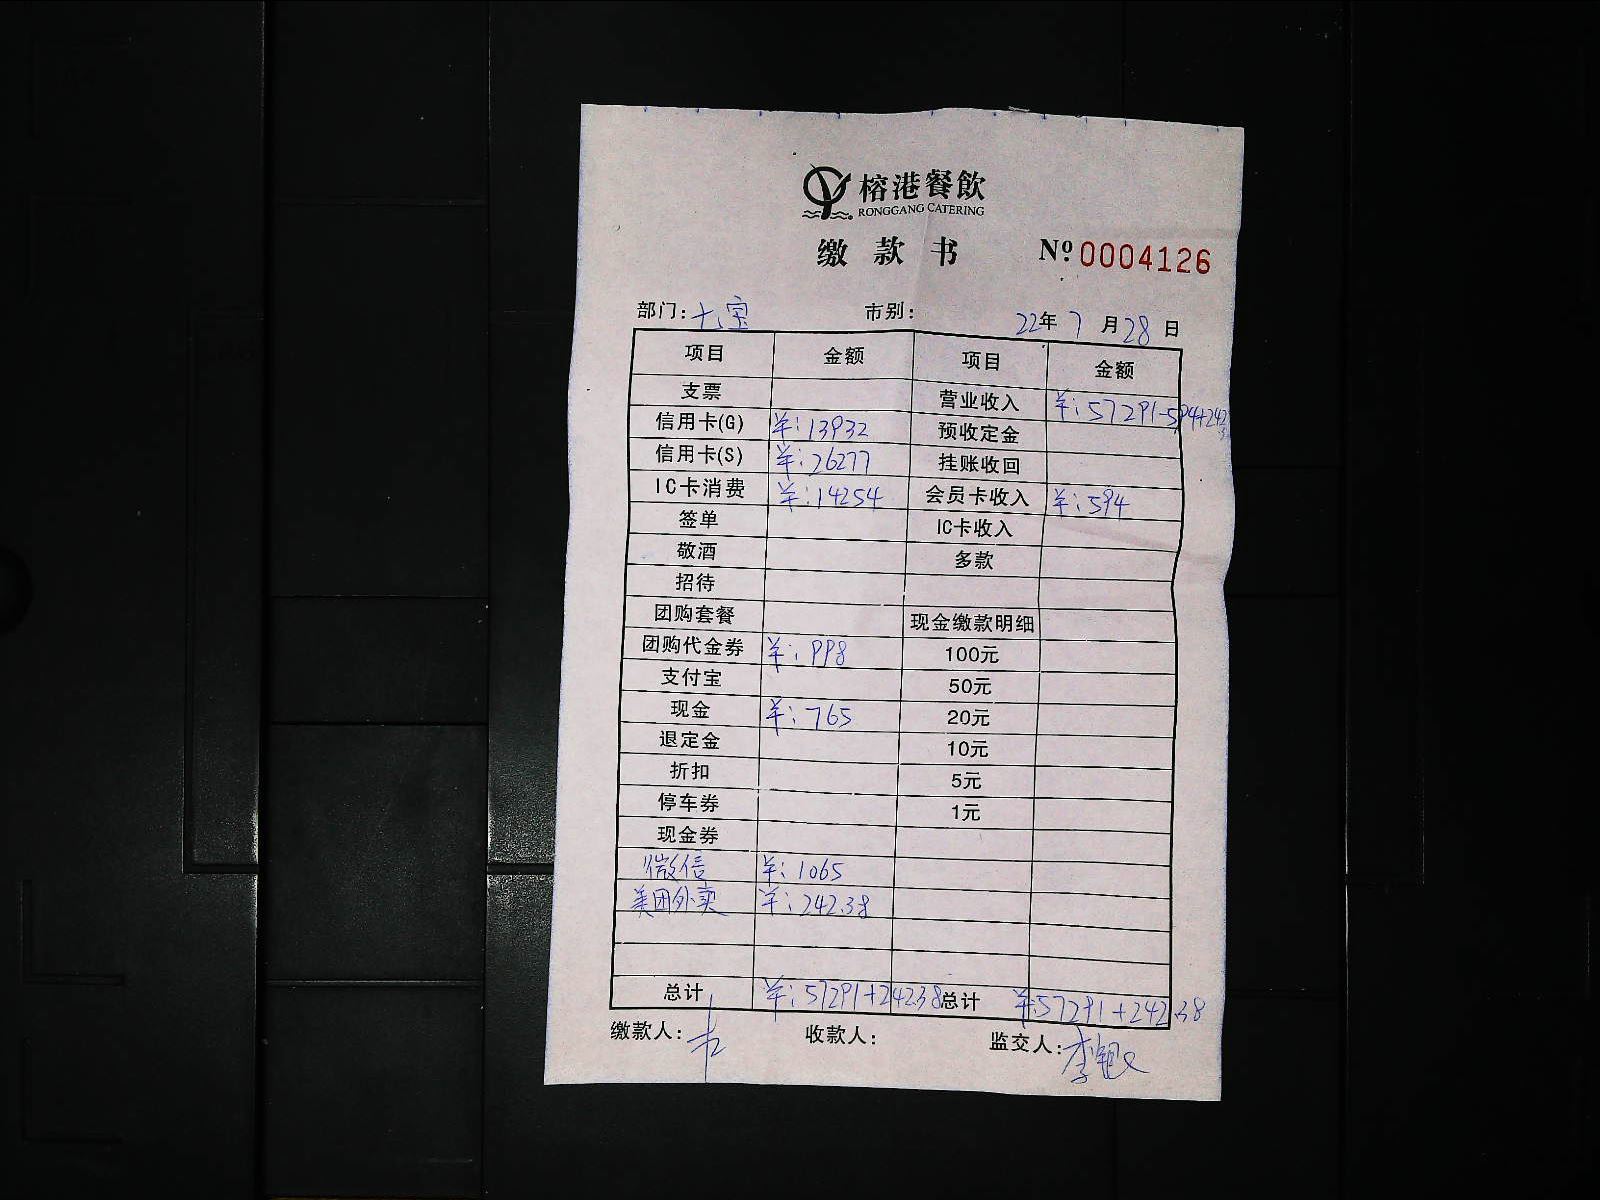 榕港餐飲
RONGGANG CATERING
缴款书 Nº 0004126
部门: 七宝 市别: 22年7月28日
项目 金额 项目 金额
支票 营业收入 ¥:57291-594+242
信用卡(G) ¥:13932 预收定金
信用卡(S) ¥:26277 挂账收回
IC卡消费 ¥:14254 会员卡收入 ¥:594
签单 IC卡收入
敬酒 多款
招待
团购套餐 现金缴款明细
团购代金券 ¥:998 100元
支付宝 50元
现金 ¥:765 20元
退定金 10元
折扣 5元
停车券 1元
现金券
微信 ¥:1065
美团外卖 ¥:242.38
总计 ¥:57291+242.38 总计 ¥:57291+242.38
缴款人: 收款人: 监交人: